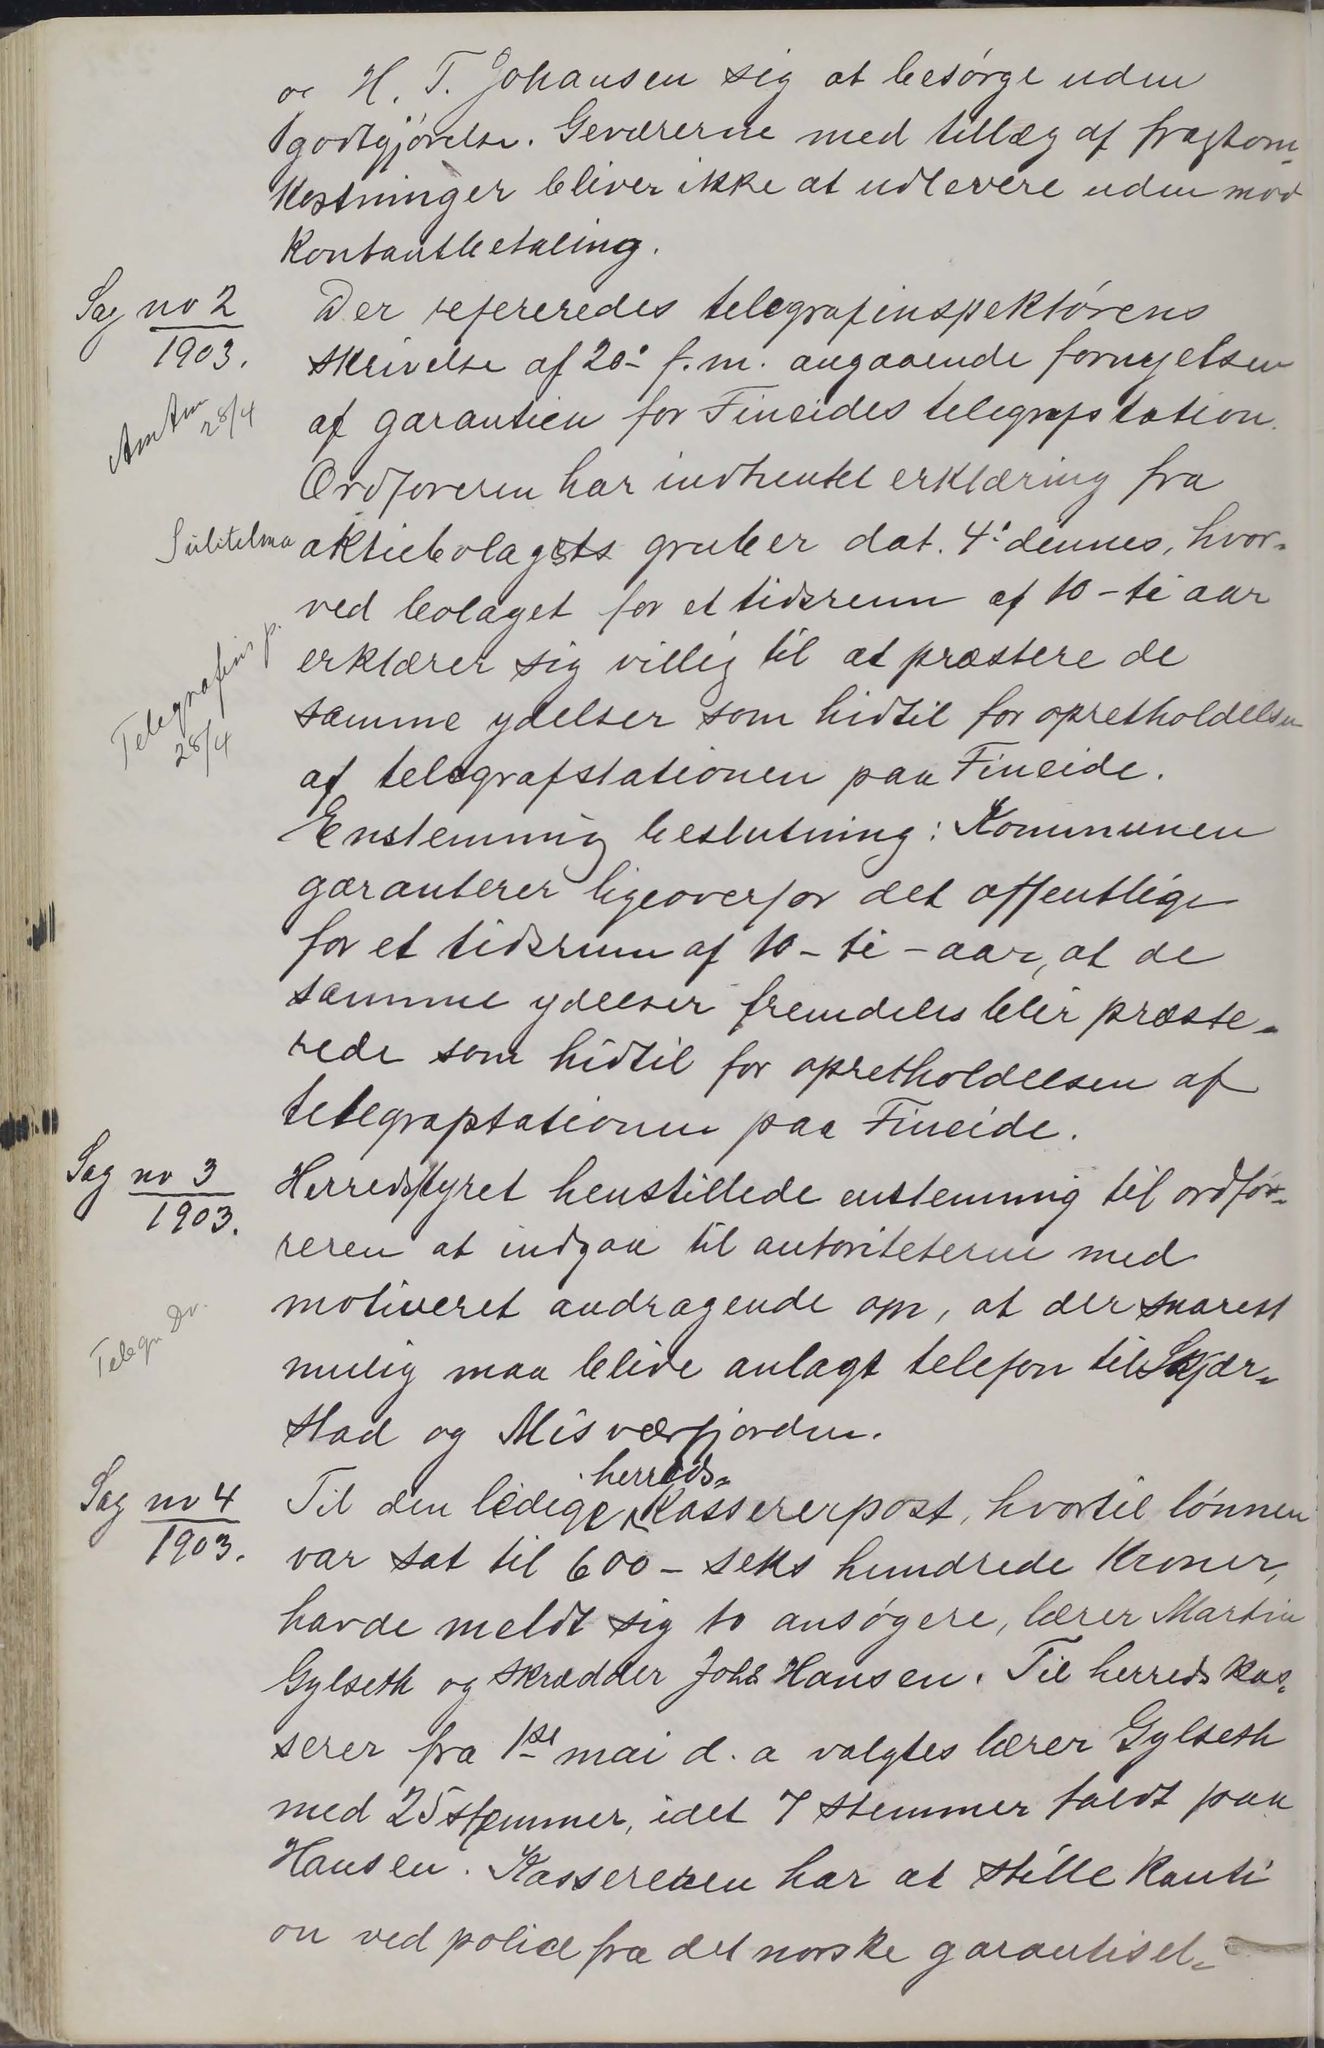 og H. T. Johansen sig at besørge uden
godtgjørelse. Geværerne med tillæg af fragtom-
kostninger bliver ikke at udlevere uden mod
kontantbetaling.
Sag no 2
1903.
Der refereredes telegrafinspektørens
skrivelse af 20: f.m. angaaende fornyelsen
Amtm
28/4
af garantien for Fineides telegrafstation.
Ordføreren har indhentet erklæring fra
Sulitelma aktiebolagets gruber dat. 4: dennes, hvor-
ved bolaget for et tidsrum af 10 - ti aar
Telegrafinsp.
28/4
erklærer sig villig til at præstere de
samme ydelser som hidtil for opretholdelsen
af telegrafstationen paa Fineide.
Enstemmig beslutning: Kommunen
garanterer ligeoverfor det offentlige
for et tidsrum af 10 - ti - aar, at de
samme ydelser fremdeles blir præste-
rede som hidtil for opretholdelsen af
telegrafstationen paa Fineide.
Sag no 3
1903.
Herredsstyret henstillede enstemmig til ordfø-
reren at indgaa til autoriteterne med
Telegr. Dr.
motiveret andragende om, at der snarest
mulig maa blive anlagt telefon til Skjær-
stad og Misværfjorden.
Sag no 4
1903.
Til den ledige herreds-kassererpost, hvortil lønnen
var sat til 600 - seks hundrede kroner,
havde meldt sig to ansøgere, lærer Martin
Gylseth og skrædder Johs Hansen. Til herredskas-
serer fra 1ste mai d. a valgtes lærer Gylseth
med 25 stemmer, idet 7 stemmer faldt paa
Hansen. Kassereren har at stille kauti
on ved police fra det norske garantisel-